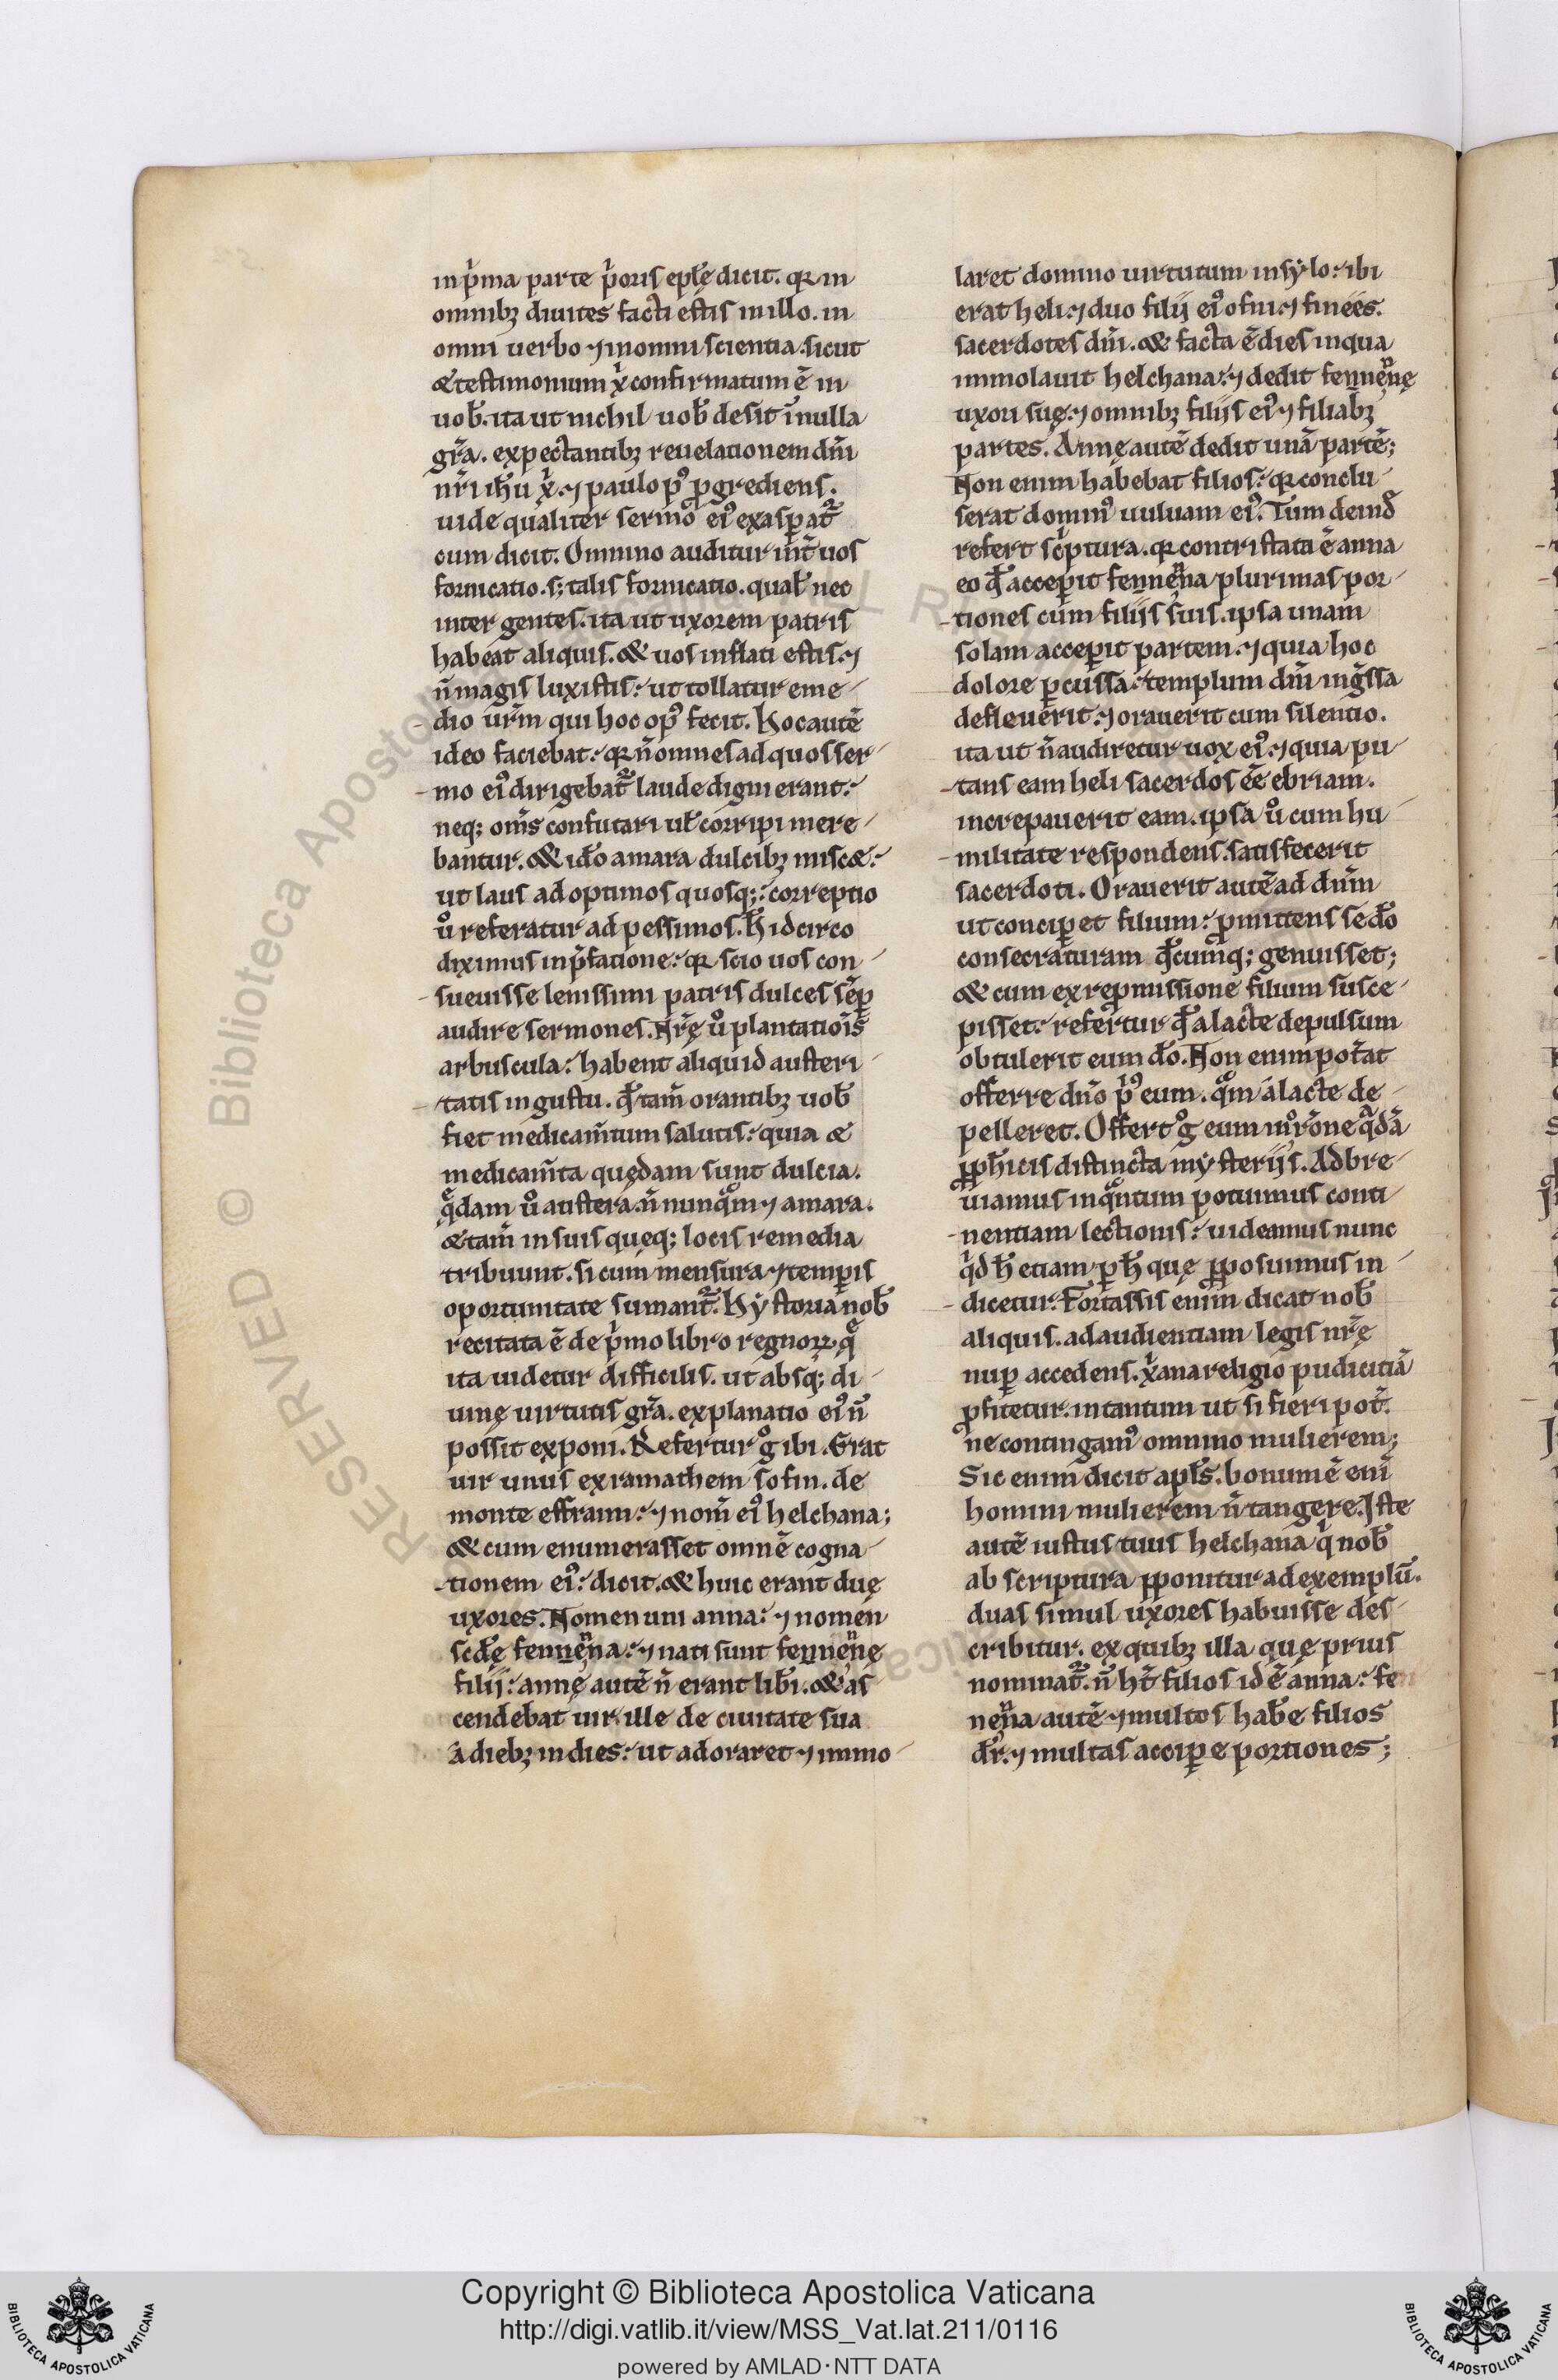 in pͥma parte pͥoris epłę dicit. qꝛ in
omnibꝫ diuites facti estis in illo. in
omni uerbo ⁊ in omni scientia. sicut
& testimonium xͥ confirmatum ē in
uob̄. ita ut nichil uob̄ desit in̄ ulla
gr̄a. expectantibꝫ reuelationem dn̄i
nr̄i ih̄u xͥ. ⁊ paulo pꝰ ꝓgrediens.
uide qualiter sermo eiꝰ exasꝑat᷑
cum dicit. Omnino auditur int̄ uos
fornicatio. s; talis fornicatio. qual̄ nec
inter gentes. ita ut uxorem patris
habeat aliquis. & uos inflati estis. ⁊
n̄ magis luxistis. ut tollatur e me
dio ur̄m qui hoc opꝰ fecit. Hoc autē
ideo faciebat. qꝛ n̄ omnes ad quos ser
mo eiꝰ dirigebat᷑ laude digni erant.
neq; om̄s confutari ul̄ corripi mere
bantur. & id̄o amara dulcibꝫ misc&.
ut laus ad optimos quosq;. correptio
ů referatur ad pessimos. h̄ idcirco
diximus in p̄fatione. qꝛ scio uos con
sueuisse lenissimi patris dulces sēꝑ
audire sermones. Nr̄ę ů plantatiōis
arbuscula. habent aliquid austeri
tatis in gustu. qd̄ tam̄ orantibꝫ uob̄
fiet medicam̄tum salutis. quia &
medicam̄ta quędam sunt dulcia.
q̄dam ů austera. n̄ nunqͣm ⁊ amara.
& tam̄ in suis quęq; locis remedia
tribuunt. si cum mensura ⁊ temꝑis
oportunitate sumant᷑. Hẏstoria nob̄
recitata ē de pͥmo libro regnoꝝ. q̄
ita uidetur difficilis. ut absq; di
uinę uirtutis gr̄a. explanatio eiꝰ n̄
possit exponi. Refertur gͦ ibi. Erat
uir unus ex ramathem sofin. de
monte effraim. ⁊ nom̄ eiꝰ helchana;
& cum enumerasset omnē cogna
tionem eiꝰ. dicit. & huic erant duę
uxores. Nomen uni anna. ⁊ nomen
scd̄ę fennenna. ⁊ nati sunt fennennę
filij. annę autē n̄ erant lib̄i. & as
cendebat uir ille de ciuitate sua
a diebꝫ in dies. ut adoraret ⁊ immo
laret domino uirtutum in sẏlo. ibi
erat heli. ⁊ duo filij eiꝰ ofni. ⁊ finees.
sacerdotes dn̄i. & facta ē dies in qua
immolauit helchana. ⁊ dedit fennennę
uxori suę. ⁊ omnibꝫ filijs eiꝰ ⁊ filiabꝫ
partes. Annę autē dedit unā partē;
Non enim habebat filios. qꝛ conclu
serat dominꝰ uuluam eiꝰ. Tum deind̄
refert scͥptura. qꝛ contristata ē anna
eo qd̄ acceꝑit fennenna plurimas por
tiones cum filijs suis. ipsa unam
solam acceꝑit partem. ⁊ quia hoc
dolore ꝑcussa. templum dn̄i ingͤssa
defleuerit. ⁊ orauerit cum silentio.
ita ut n̄ audiretur uox eiꝰ. ⁊ quia pu
tans eam heli sacerdos ēe ebriam.
increpauerit eam. ipsa ů cum hu
militate respondens. satisfecerit
sacerdoti. Orauerit autē ad dn̄m
ut conciꝑet filium. ꝓmittens se dō
consecraturam qd̄cunq; genuisset;
& cum ex reꝓmissione filium susce
pisset. refertur qd̄ a lacte depulsum
obtulerit eum dō. Non enim pot̄at
offerre dn̄o pͥꝰ eum. qͦm a lacte de
pelleret. Offert gͦ eum nūo r̄one qͣdā
ꝓph̄icis distincta mẏsterijs. Adbre
uiamus inqͣntum potuimus conti
nentiam lectionis. uideamus nunc
qͥd h̄ etiam ꝑ h̄ quę ꝓposuimus in
dicetur. Fortassis enim dicat nob̄
aliquis. ad audientiam legis nr̄ę
nuꝑ accedens. xͥana religio pudicitiā
ꝓfitetur. in tantum ut si fieri pot̄.
ne contingamꝰ omnino mulierem;
Sic enim dicit apl̄s. bonum ē eni̅
homini mulierem n̄ tangere. Iste
autē iustus tuus helchana qͥ nob̄
ab scriptura ꝓponitur ad exemplū.
duas simul uxores habuisse des
cribitur. ex quibꝫ illa quę prius
nominat᷑. n̄ ht̄ filios id ē anna. fe
nenna autē ⁊ multos hab̄e filios
dr̄. ⁊ multas acciꝑe portiones;
RESERVED © Biblioteca Apostolica Vaticana
Copyright © Biblioteca Apostolica Vaticana
http://digi.vatlib.it/view/MSS_Vat.lat.211/0116
powered by AMLAD·NTT DATA
BIBLIOTECA APOSTOLICA VATICANA
BIBLIOTECA APOSTOLICA VATICANA